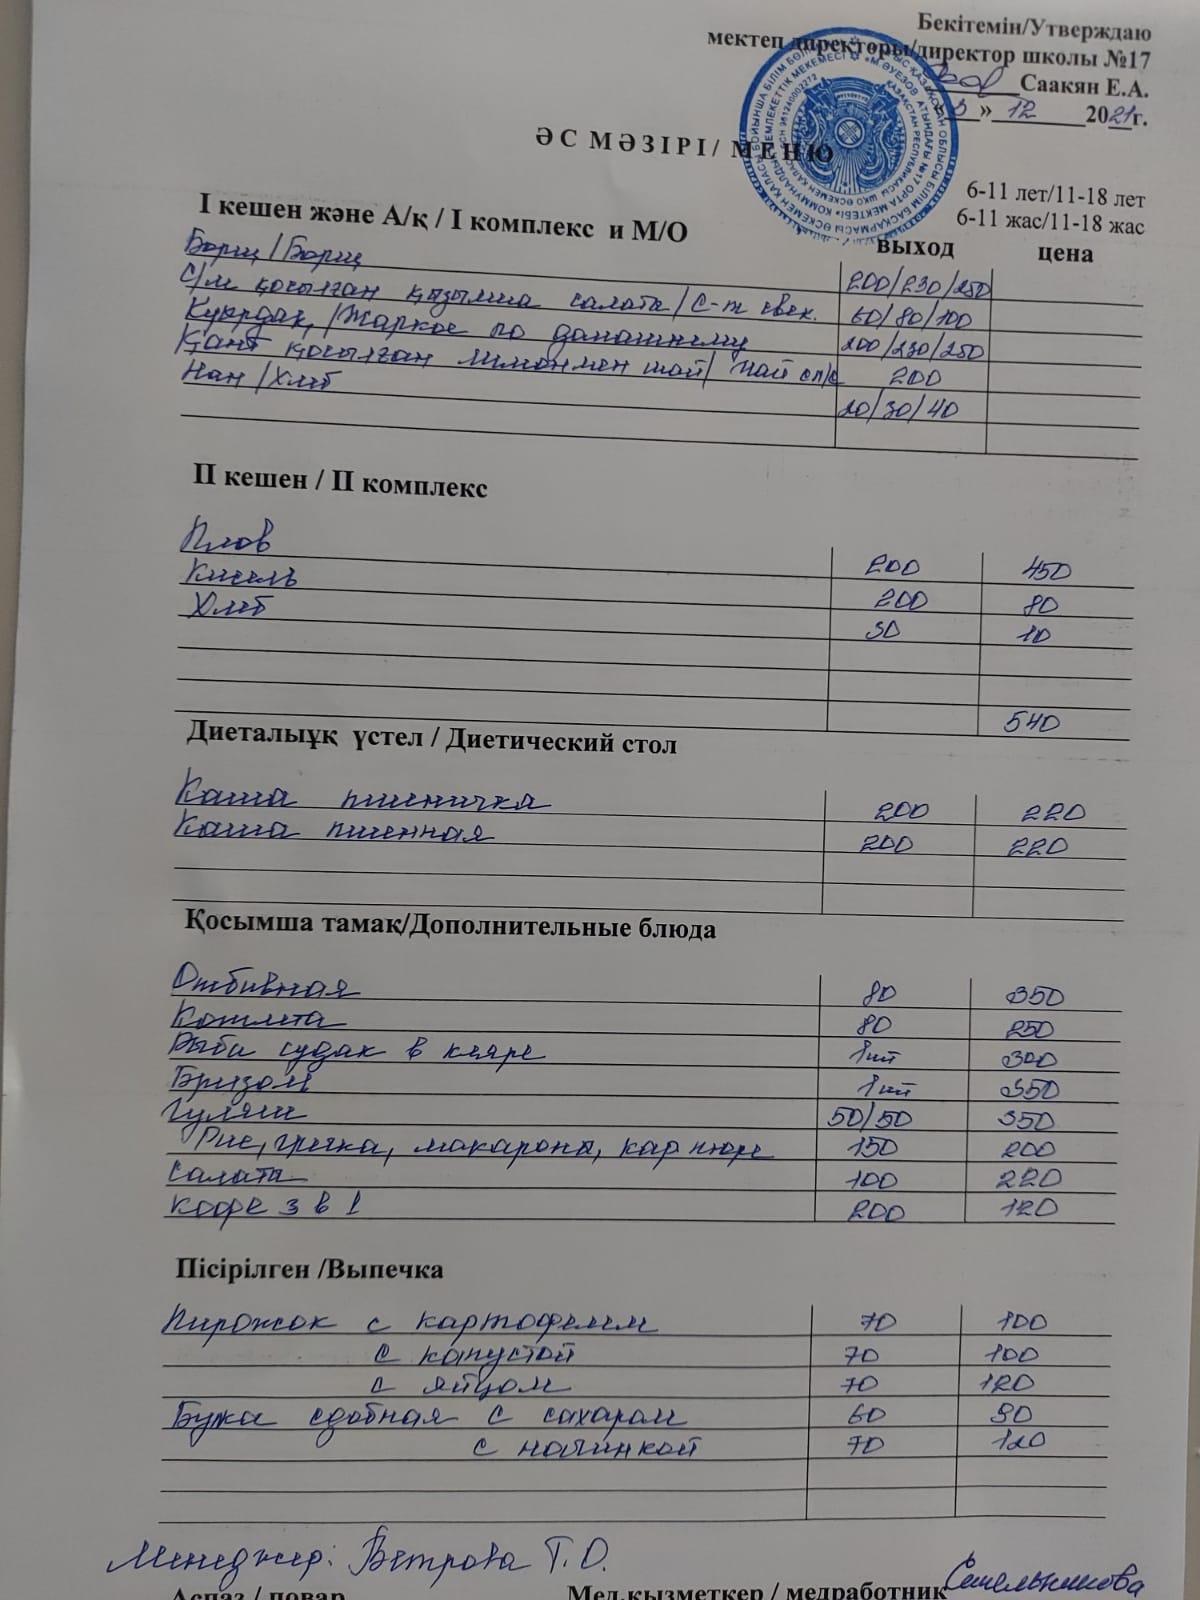 Бекітемін/Утверждаю
мектеп директоры/директор школы №17
Саакян Е.А.
«3» 12 2021г.
ӘС МӘЗІРІ/ МЕНЮ
6-11 лет/11-18 лет
6-11 жас/11-18 жас
I кешен және А/қ / I комплекс и М/О выход цена
Борщ/Борщ 200/230/250
С/м қосылған қызылша салата/С-т свек. 60/80/100
Куырдақ/Жаркое по домашнему 200/230/250
Қант қосылған лимонмен шай/ Чай сл/с 200
Нан/Хлеб 20/30/40
II кешен / II комплекс
Плов 200 450
Кисель 200 80
Хлеб 30 10
540
Диеталыұқ үстел / Диетический стол
Каша пшеничка 200 220
Каша пшенная 200 220
Қосымша тамақ/Дополнительные блюда
Отбивная 80 350
Котлета 80 250
Рыба судак в кляре 1шт 300
Бризоль 1шт 350
Гуляш 50/50 350
Рис, гречка, макароны, кар пюре 150 200
Салата 100 220
Кофе 3 в 1 200 120
Пісірілген /Выпечка
Пирожок с картофелем 70 100
с капустой 70 100
с яйцом 70 120
Бужа сдобная с сахаром 60 90
с начинкой 70 120
Менеджер: Ветрова Т.О.
Аспаз / повар Мед.қызметкер / медработник